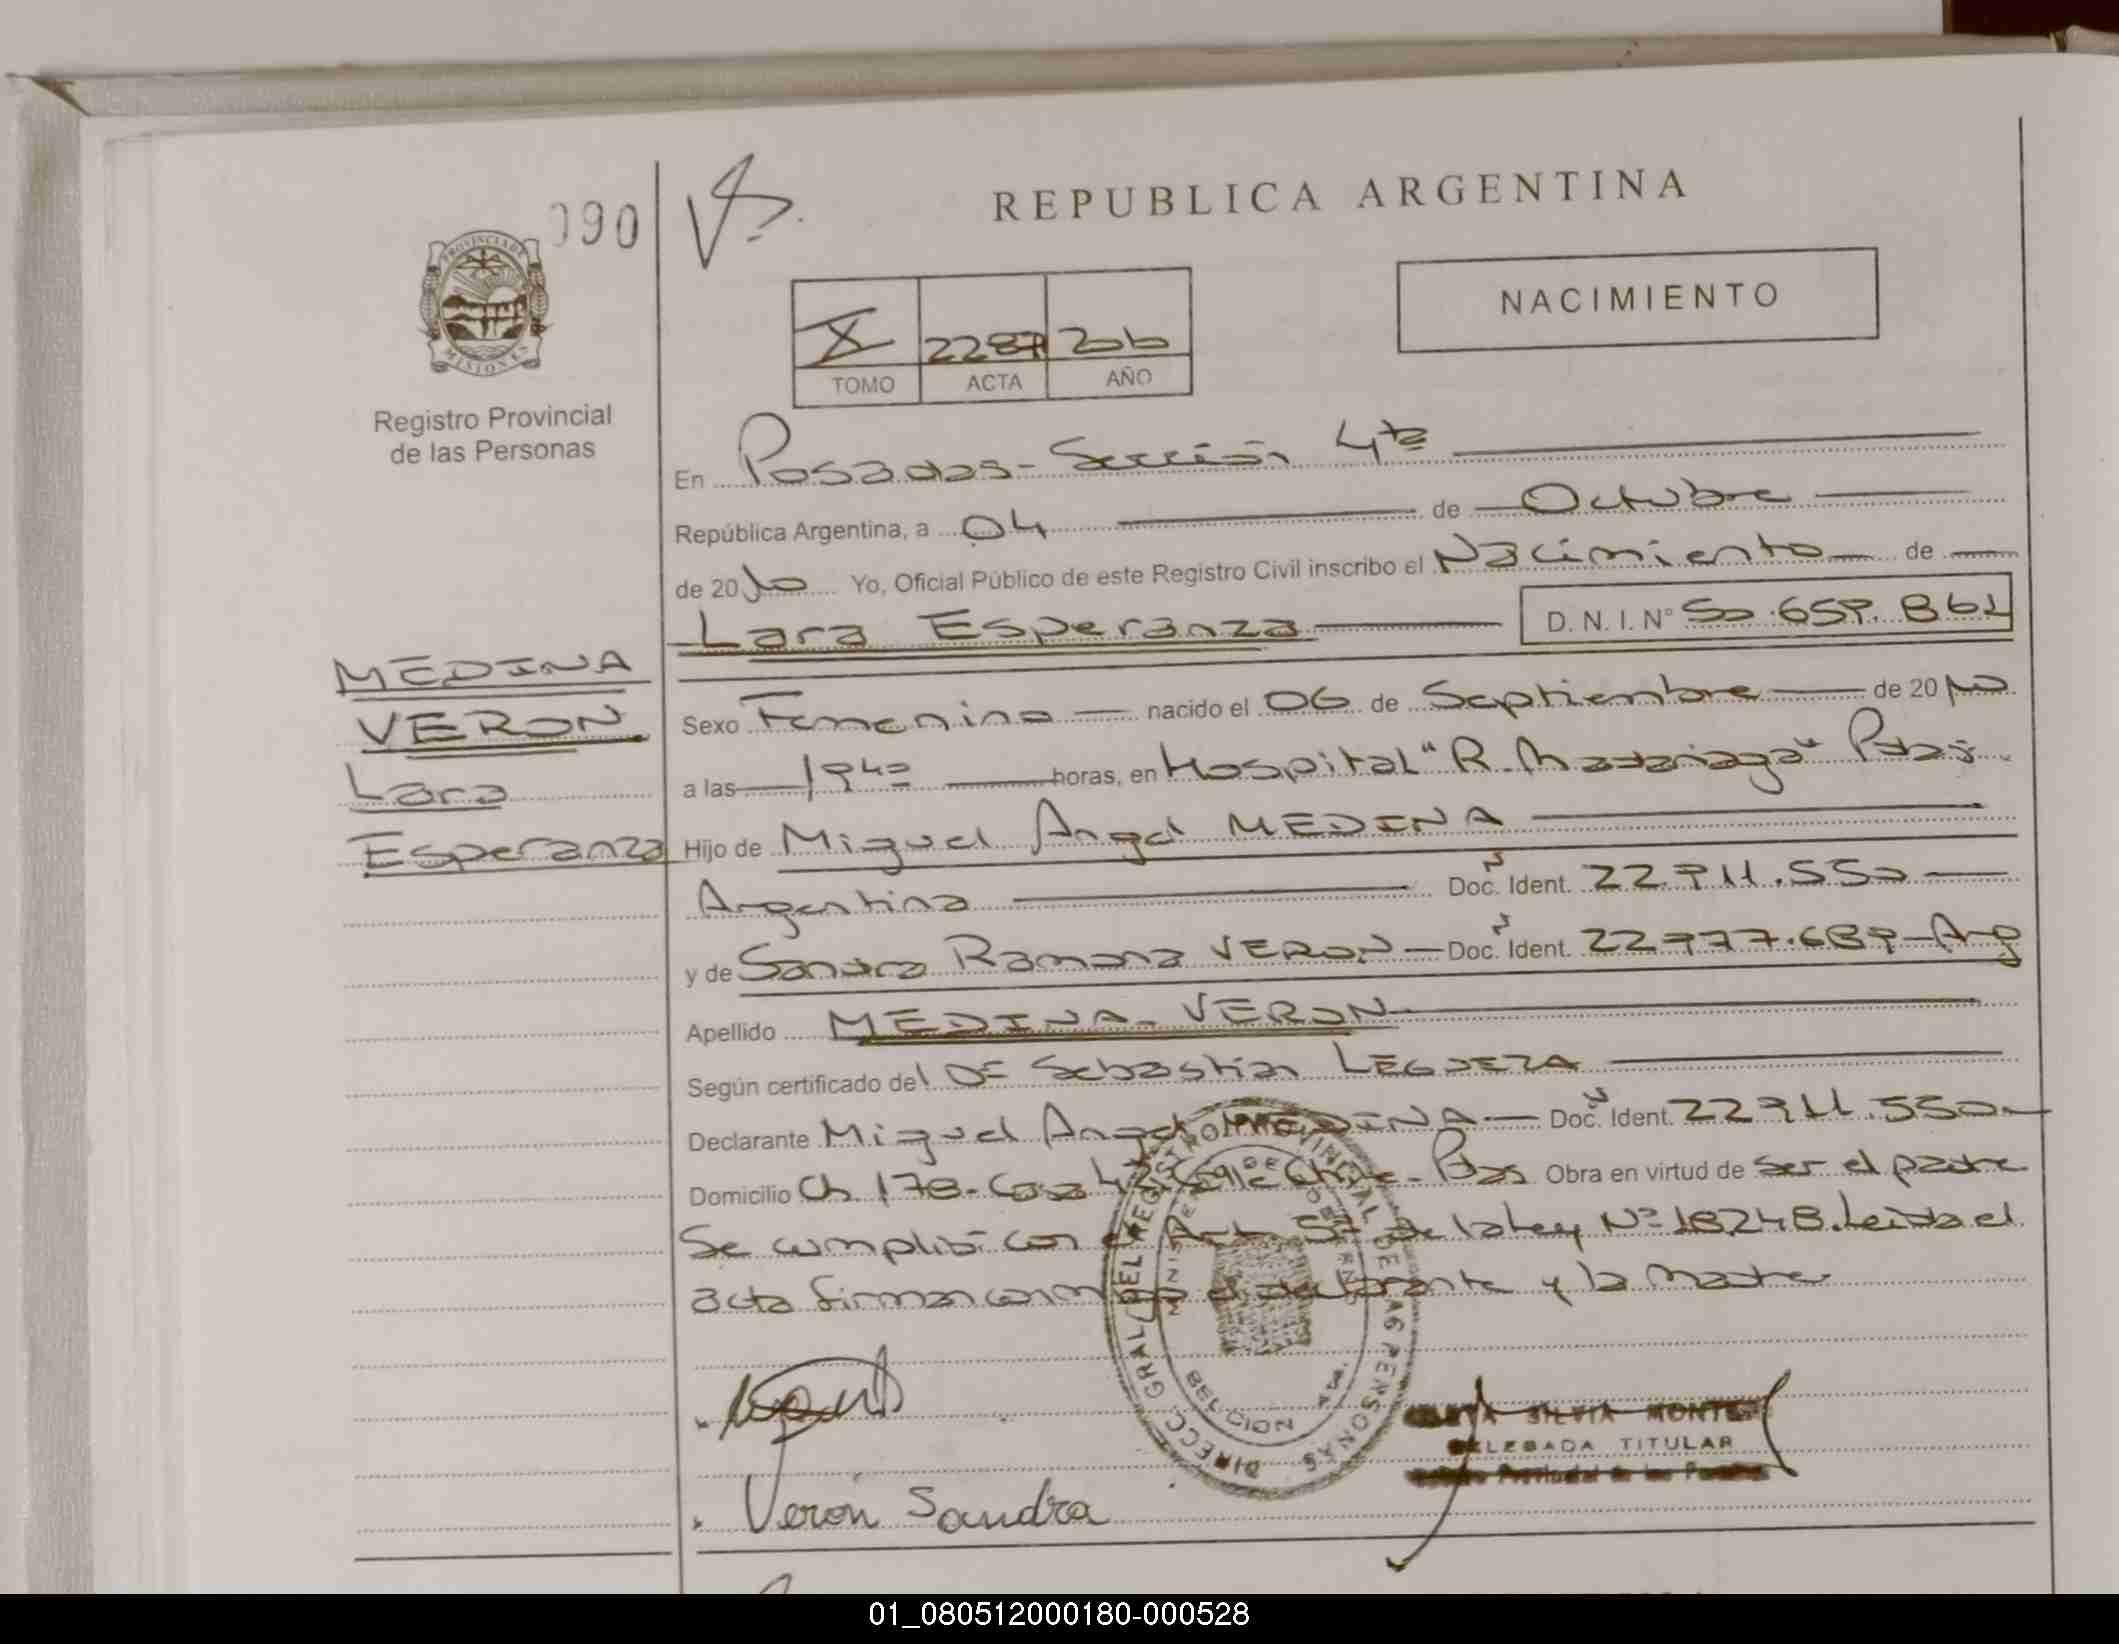 090
REPUBLICA ARGENTINA
PROVINCIA DE
MISIONES
NACIMIENTO
X 2287 2010
TOMO ACTA AÑO
Registro Provincial
de las Personas
En Posadas - Sección 4ta
República Argentina, a 04 de Octubre
de 2010 Yo, Oficial Público de este Registro Civil inscribo el Nacimiento de
Lara Esperanza D. N. I. N° 50.659.861
MEDINA
VERON
Lara
Esperanza
Sexo Femenino nacido el 06 de Septiembre de 2010
a las 19 40 horas, en Hospital "R. Madariaga" Pdas.
Hijo de Miguel Angel MEDINA
Argentina Doc. Ident. 22.911.550
y de Sandra Ramona VERON Doc. Ident. 22.777.689 Arg
Apellido MEDINA VERON
Según certificado del Dr Sebastián LEGUIZA
Declarante Miguel Angel MEDINA Doc. Ident. 22.911.550
Domicilio Ch. 178 - Casa 42 Calle Chile - Pdas Obra en virtud de ser el padre
Se cumplió con el Art. 5º de la Ley Nº 18.248. Leída el
acta firman conmigo el declarante y la madre
DIRECC. GRAL. DEL REGISTRO PROVINCIAL DE LAS PERSONAS
Verón Sandra
SILVIA MONTE
DELEGADA TITULAR
Registro Provincial de las Personas
01_080512000180-000528